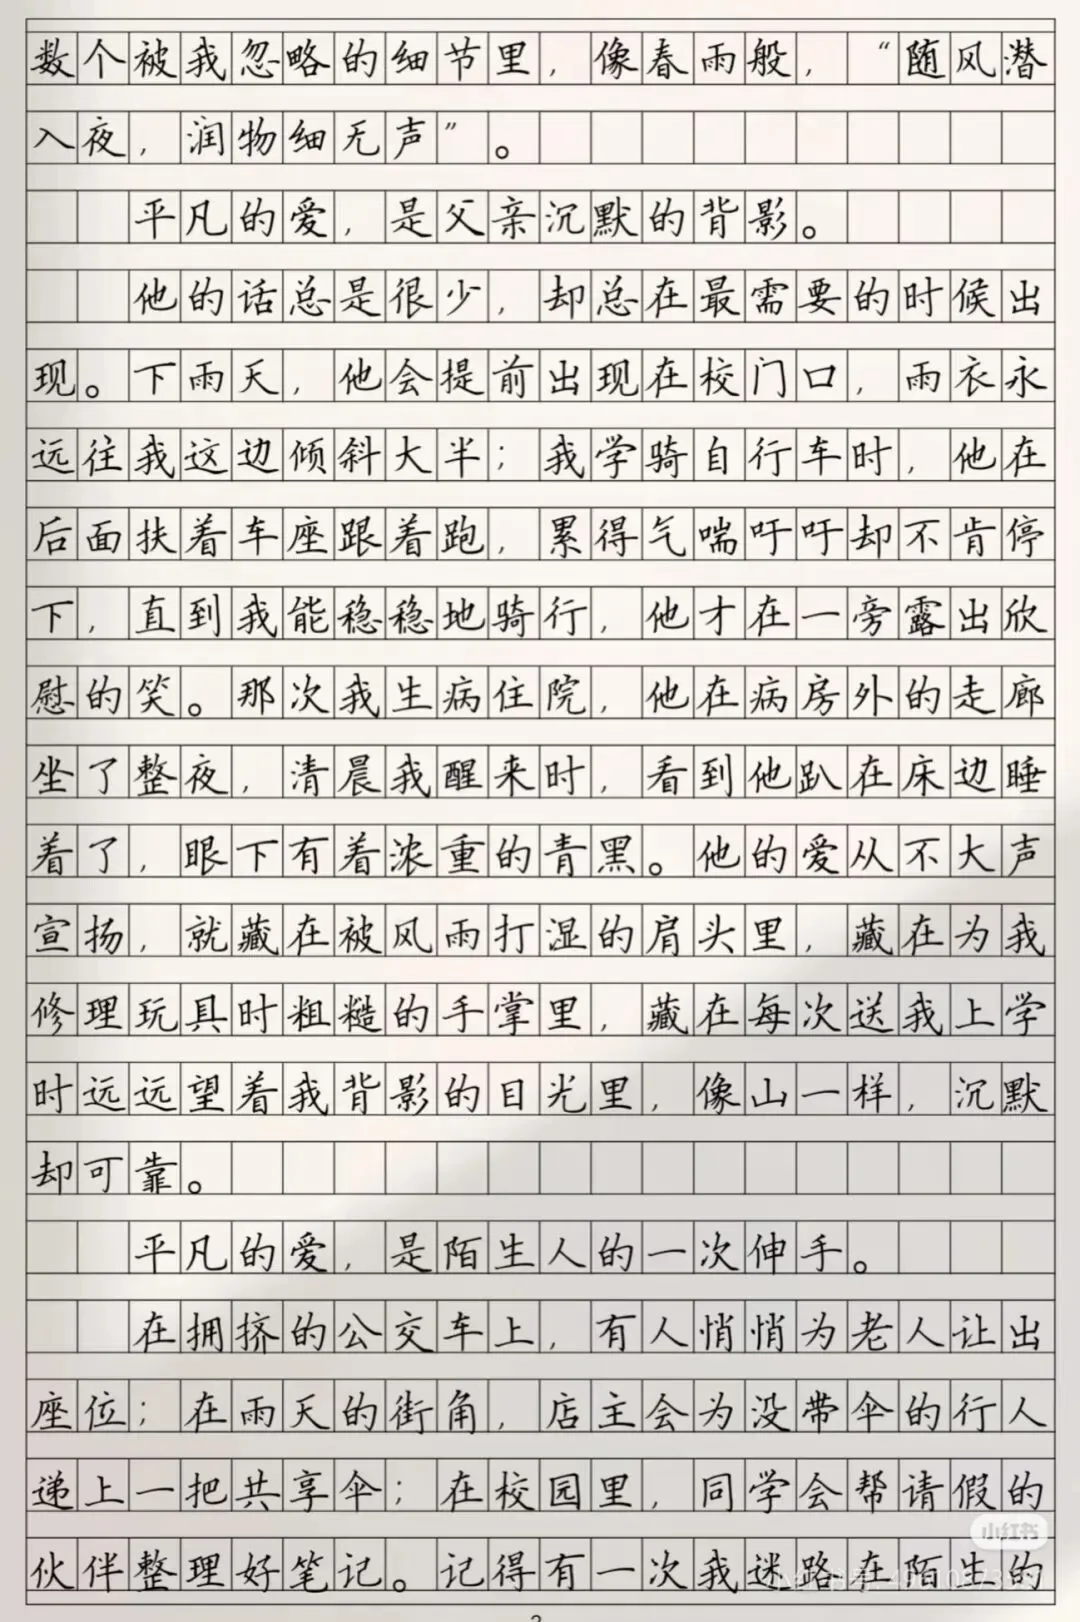 数个被我忽略的细节里，像春雨般，“随风潜
入夜，润物细无声”。
平凡的爱，是父亲沉默的背影。
他的话总是很少，却总在最需要的时候出
现。下雨天，他会提前出现在校门口，雨衣永
远往我这边倾斜大半；我学骑自行车时，他在
后面扶着车座跟着跑，累得气喘吁吁却不肯停
下，直到我能稳稳地骑行，他才在一旁露出欣
慰的笑。那次我生病住院，他在病房外的走廊
坐了整夜，清晨我醒来时，看到他趴在床边睡
着了，眼下有着浓重的青黑。他的爱从不大声
宣扬，就藏在被风雨打湿的肩头里，藏在为我
修理玩具时粗糙的手掌里，藏在每次送我上学
时远远望着我背影的目光里，像山一样，沉默
却可靠。
平凡的爱，是陌生人的一次伸手。
在拥挤的公交车上，有人悄悄为老人让出
座位；在雨天的街角，店主会为没带伞的行人
递上一把共享伞；在校园里，同学会帮请假的
小红书
伙伴整理好笔记。记得有一次我迷路在陌生的
小红书号: